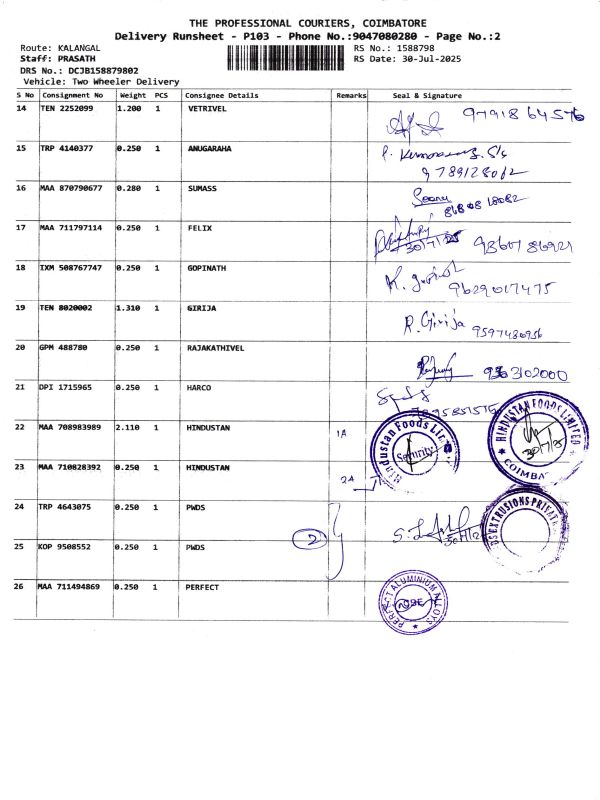 THE PROFESSIONAL COURIERS, COIMBATORE
Delivery Runsheet - P103 - Phone No.:9047080280 - Page No.:2
Route: KALANGAL RS No.: 1588798
Staff: PRASATH RS Date: 30-Jul-2025
DRS No.: DCJB158879802
Vehicle: Two Wheeler Delivery
S No Consignment No Weight PCS Consignee Details Remarks Seal & Signature
14 TEN 2252099 1.200 1 VETRIVEL 97918 64576
15 TRP 4140377 0.250 1 ANUGARAHA
9789128062
16 MAA 870790677 0.280 1 SUMASS
17 MAA 711797114 0.250 1 FELIX 30/7/25
18 IXM 508767747 0.250 1 GOPINATH
9629017475
19 TEN 8020002 1.310 1 GIRIJA R. Girija 9597480956
20 GPM 488780 0.250 1 RAJAKATHIVEL
21 DPI 1715965 0.250 1 HARCO
22 MAA 708983989 2.110 1 HINDUSTAN 1A Hindustan Foods Limited Security
HINDUSTAN FOODS LIMITED 30/7/25 COIMBA
23 MAA 710828392 0.250 1 HINDUSTAN 2A
24 TRP 4643075 0.250 1 PWDS
2
25 KOP 9508552 0.250 1 PWDS
26 MAA 711494869 0.250 1 PERFECT PERFECT ALUMINIUM ALLOYS